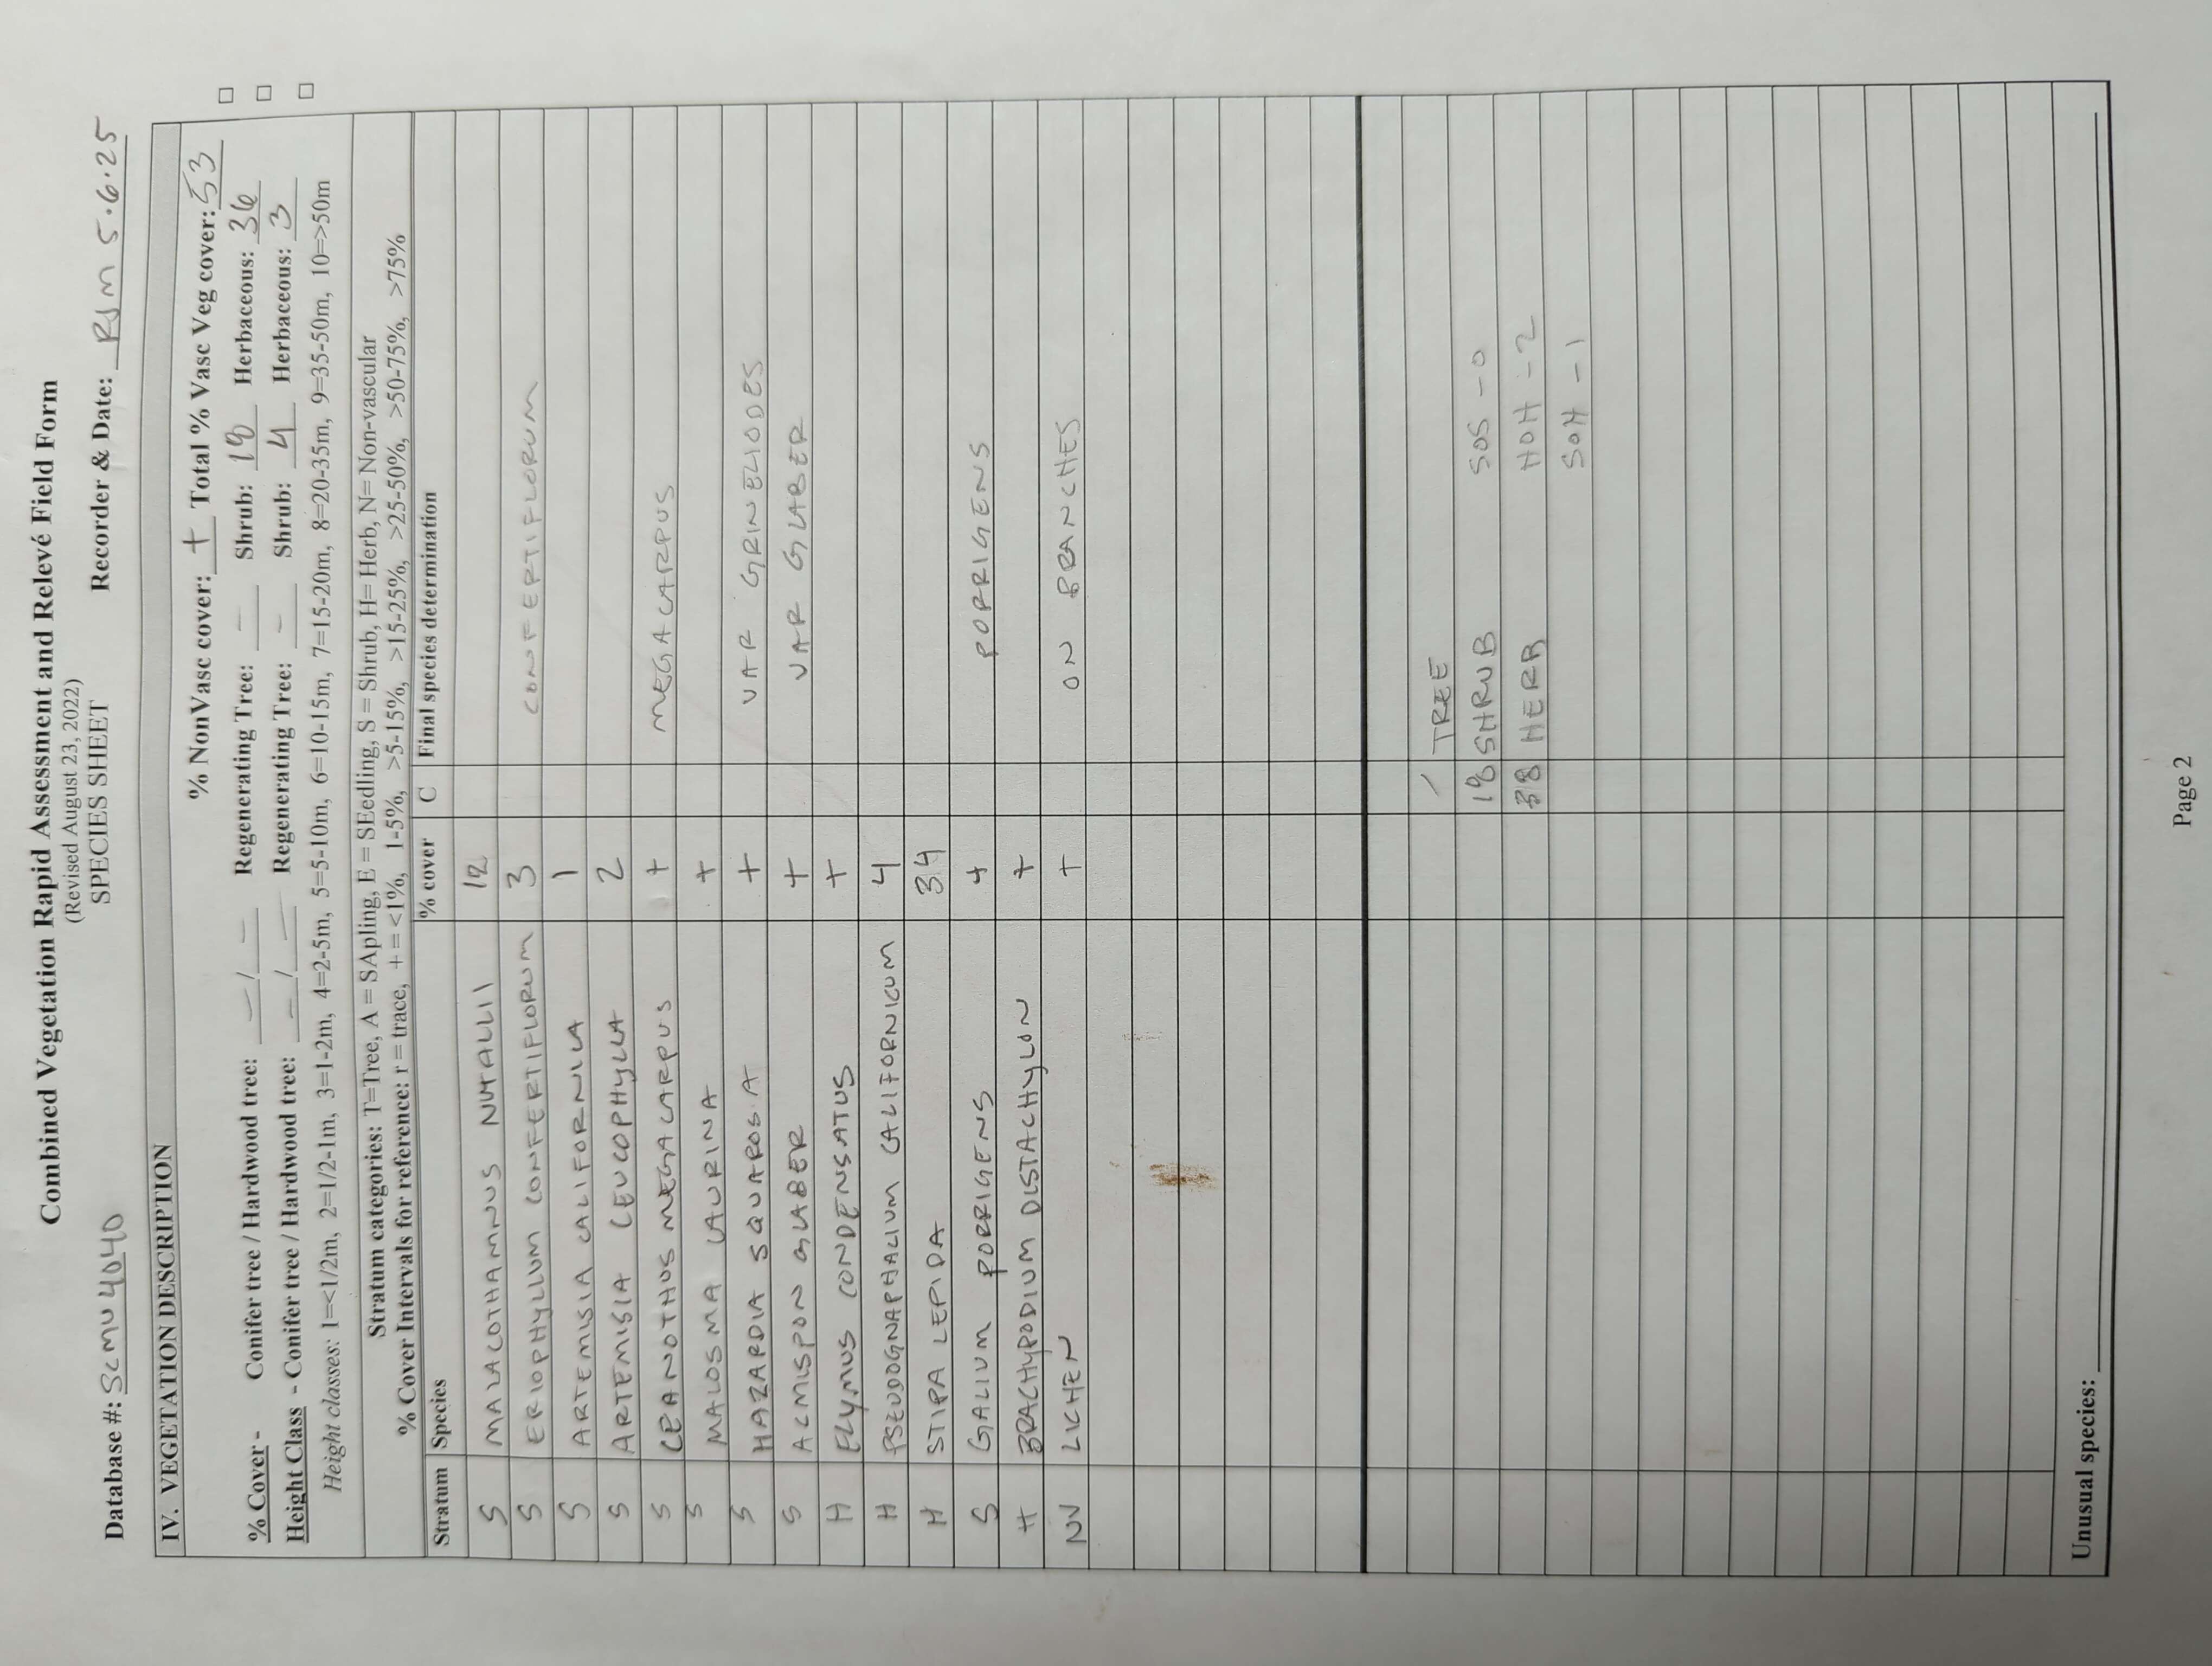 Combined Vegetation Rapid Assessment and Relevé Field Form
(Revised August 23, 2022)
SPECIES SHEET
Database #: SCMU4040 Recorder & Date: RJM 5.6.25
IV. VEGETATION DESCRIPTION
% NonVasc cover: + Total % Vasc Veg cover: 53
% Cover - Conifer tree / Hardwood tree: – / – Regenerating Tree: – Shrub: 18 Herbaceous: 36
Height Class - Conifer tree / Hardwood tree: – / – Regenerating Tree: – Shrub: 4 Herbaceous: 3
Height classes: 1=<1/2m, 2=1/2-1m, 3=1-2m, 4=2-5m, 5=5-10m, 6=10-15m, 7=15-20m, 8=20-35m, 9=35-50m, 10=>50m
Stratum categories: T=Tree, A = SApling, E = SEedling, S = Shrub, H= Herb, N= Non-vascular
% Cover Intervals for reference: r = trace, + = <1%, 1-5%, >5-15%, >15-25%, >25-50%, >50-75%, >75%
Stratum Species % cover C Final species determination
S MALACOTHAMNUS NUTALLII 12
S ERIOPHYLLUM CONFERTIFLORUM 3 CONFERTIFLORUM
S ARTEMISIA CALIFORNICA 1
S ARTEMISIA LEUCOPHYLLA 2
S CEANOTHUS MEGACARPUS + MEGACARPUS
S MALOSMA LAURINA +
S HAZARDIA SQUAROSA + VAR GRINELIODES
S ACMISPON GLABER + VAR GLABER
H ELYMUS CONDENSATUS +
H PSEUDOGNAPHALIUM CALIFORNICUM 4
H STIPA LEPIDA 34
S GALIUM PORRIGENS + PORRIGENS
H BRACHYPODIUM DISTACHYLON +
NV LICHEN + ON BRANCHES
/ TREE
18 SHRUB SOS - 0
38 HERB HOH - 2
SOH - 1
Unusual species:
Page 2